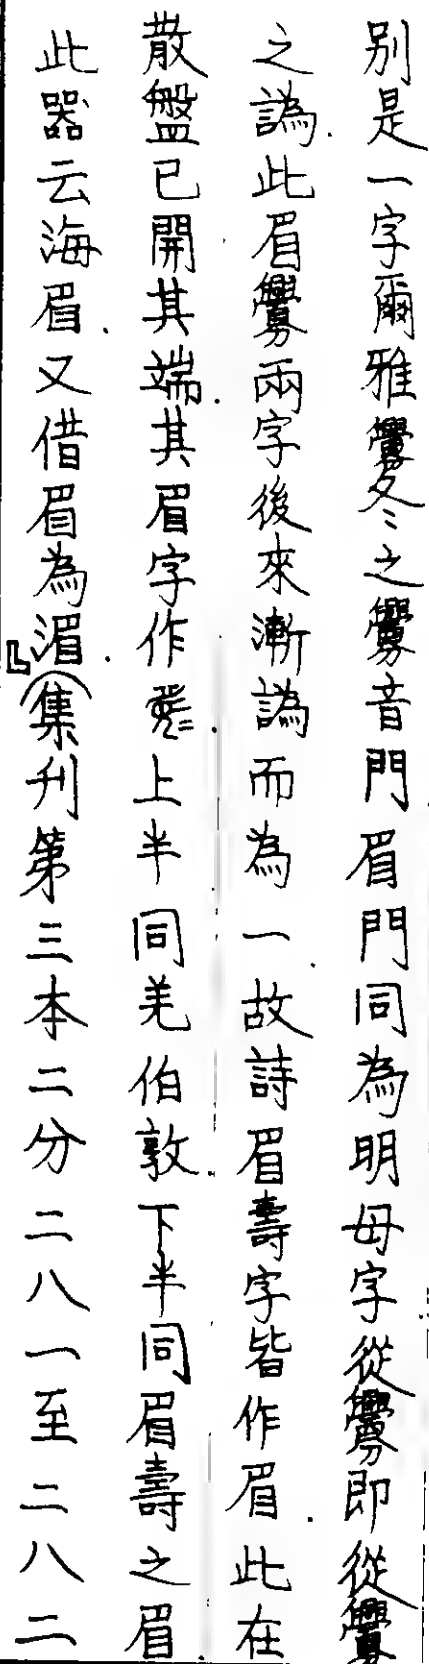 別是一字爾雅釁冬之釁音門眉門同為明母字從釁即從釁
之譌此眉釁兩字後來漸譌而為一故詩眉壽字皆作眉此在
散盤已開其端其眉字作上半同羌伯敦下半同眉壽之眉
此器云海眉又借眉為湄』(集刊第三本二分二八一至二八二